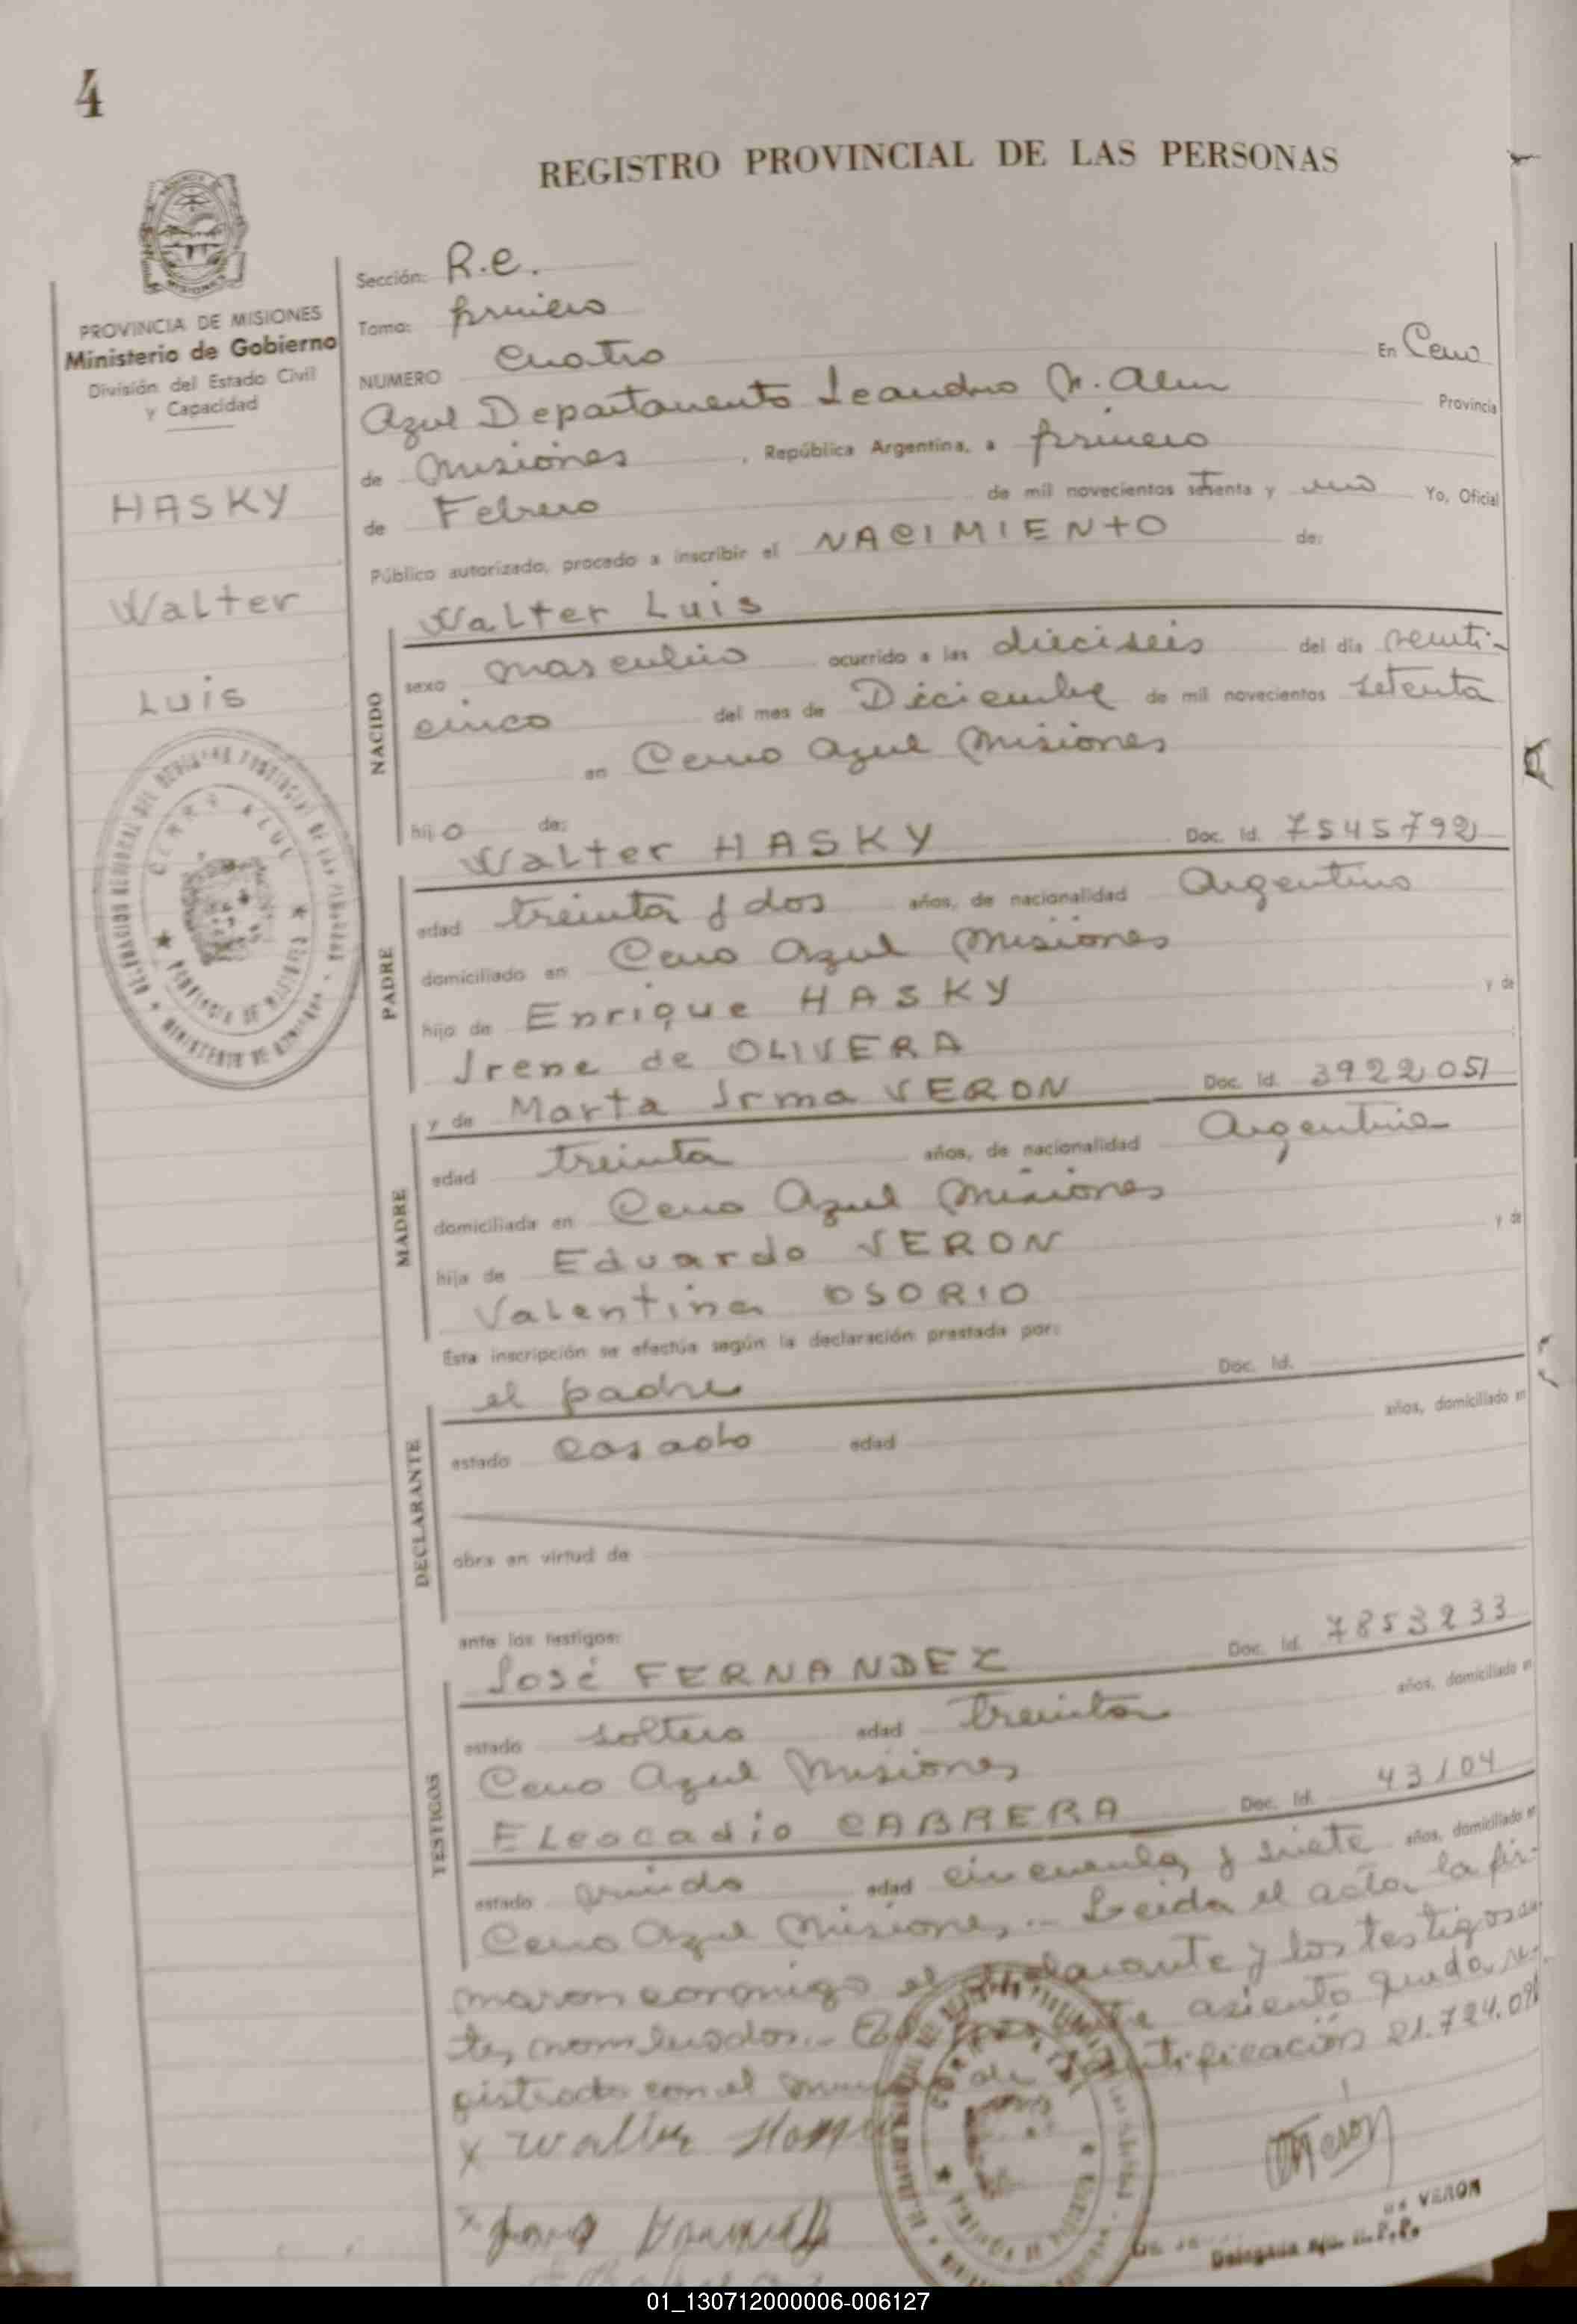 4
REGISTRO PROVINCIAL DE LAS PERSONAS
PROVINCIA DE MISIONES
Ministerio de Gobierno
División del Estado Civil
y Capacidad
HASKY
Walter
Luis
Sección: R.e.
Tomo: primero
NUMERO Cuatro En Cerro
Azul Departamento Leandro N. Alem Provincia
de Misiones, República Argentina, a primero
de Febrero de mil novecientos setenta y uno Yo, Oficial
Público autorizado, procedo a inscribir el NACIMIENTO de:
NACIDO
Walter Luis
sexo masculino ocurrido a las dieciseis del día veinti-
cinco del mes de Diciembre de mil novecientos setenta
en Cerro Azul Misiones
hijo de:
PADRE
Walter HASKY Doc. Id. 7545792
edad treinta y dos años, de nacionalidad Argentino
domiciliado en Cerro Azul Misiones
hijo de Enrique HASKY y de
Irene de OLIVERA
MADRE
y de Marta Irma VERON Doc. Id. 3922051
edad treinta años, de nacionalidad Argentina
domiciliada en Cerro Azul Misiones
hija de Eduardo VERON y de
Valentina OSORIO
Esta inscripción se efectúa según la declaración prestada por:
DECLARANTE
el padre Doc. Id.
estado casado edad años, domiciliado en
obra en virtud de
ante los testigos:
TESTIGOS
José FERNANDEZ Doc. Id. 7853233
estado soltero edad treinta años, domiciliado en
Cerro Azul Misiones
Eleocadio CABRERA Doc. Id. 43104
estado viudo edad cincuenta y siete años, domiciliado en
Cerro Azul Misiones.- Leida el acta la fir-
maron conmigo el declarante y los testigos an
tes nombrados.- Este presente asiento queda re-
gistrado con el numero de Identificación 21.724.09
x Walter
x
CERRO AZUL
PROVINCIA DE MISIONES
MINISTERIO DE GOBIERNO
DE VERON
Delegada
01_130712000006-006127